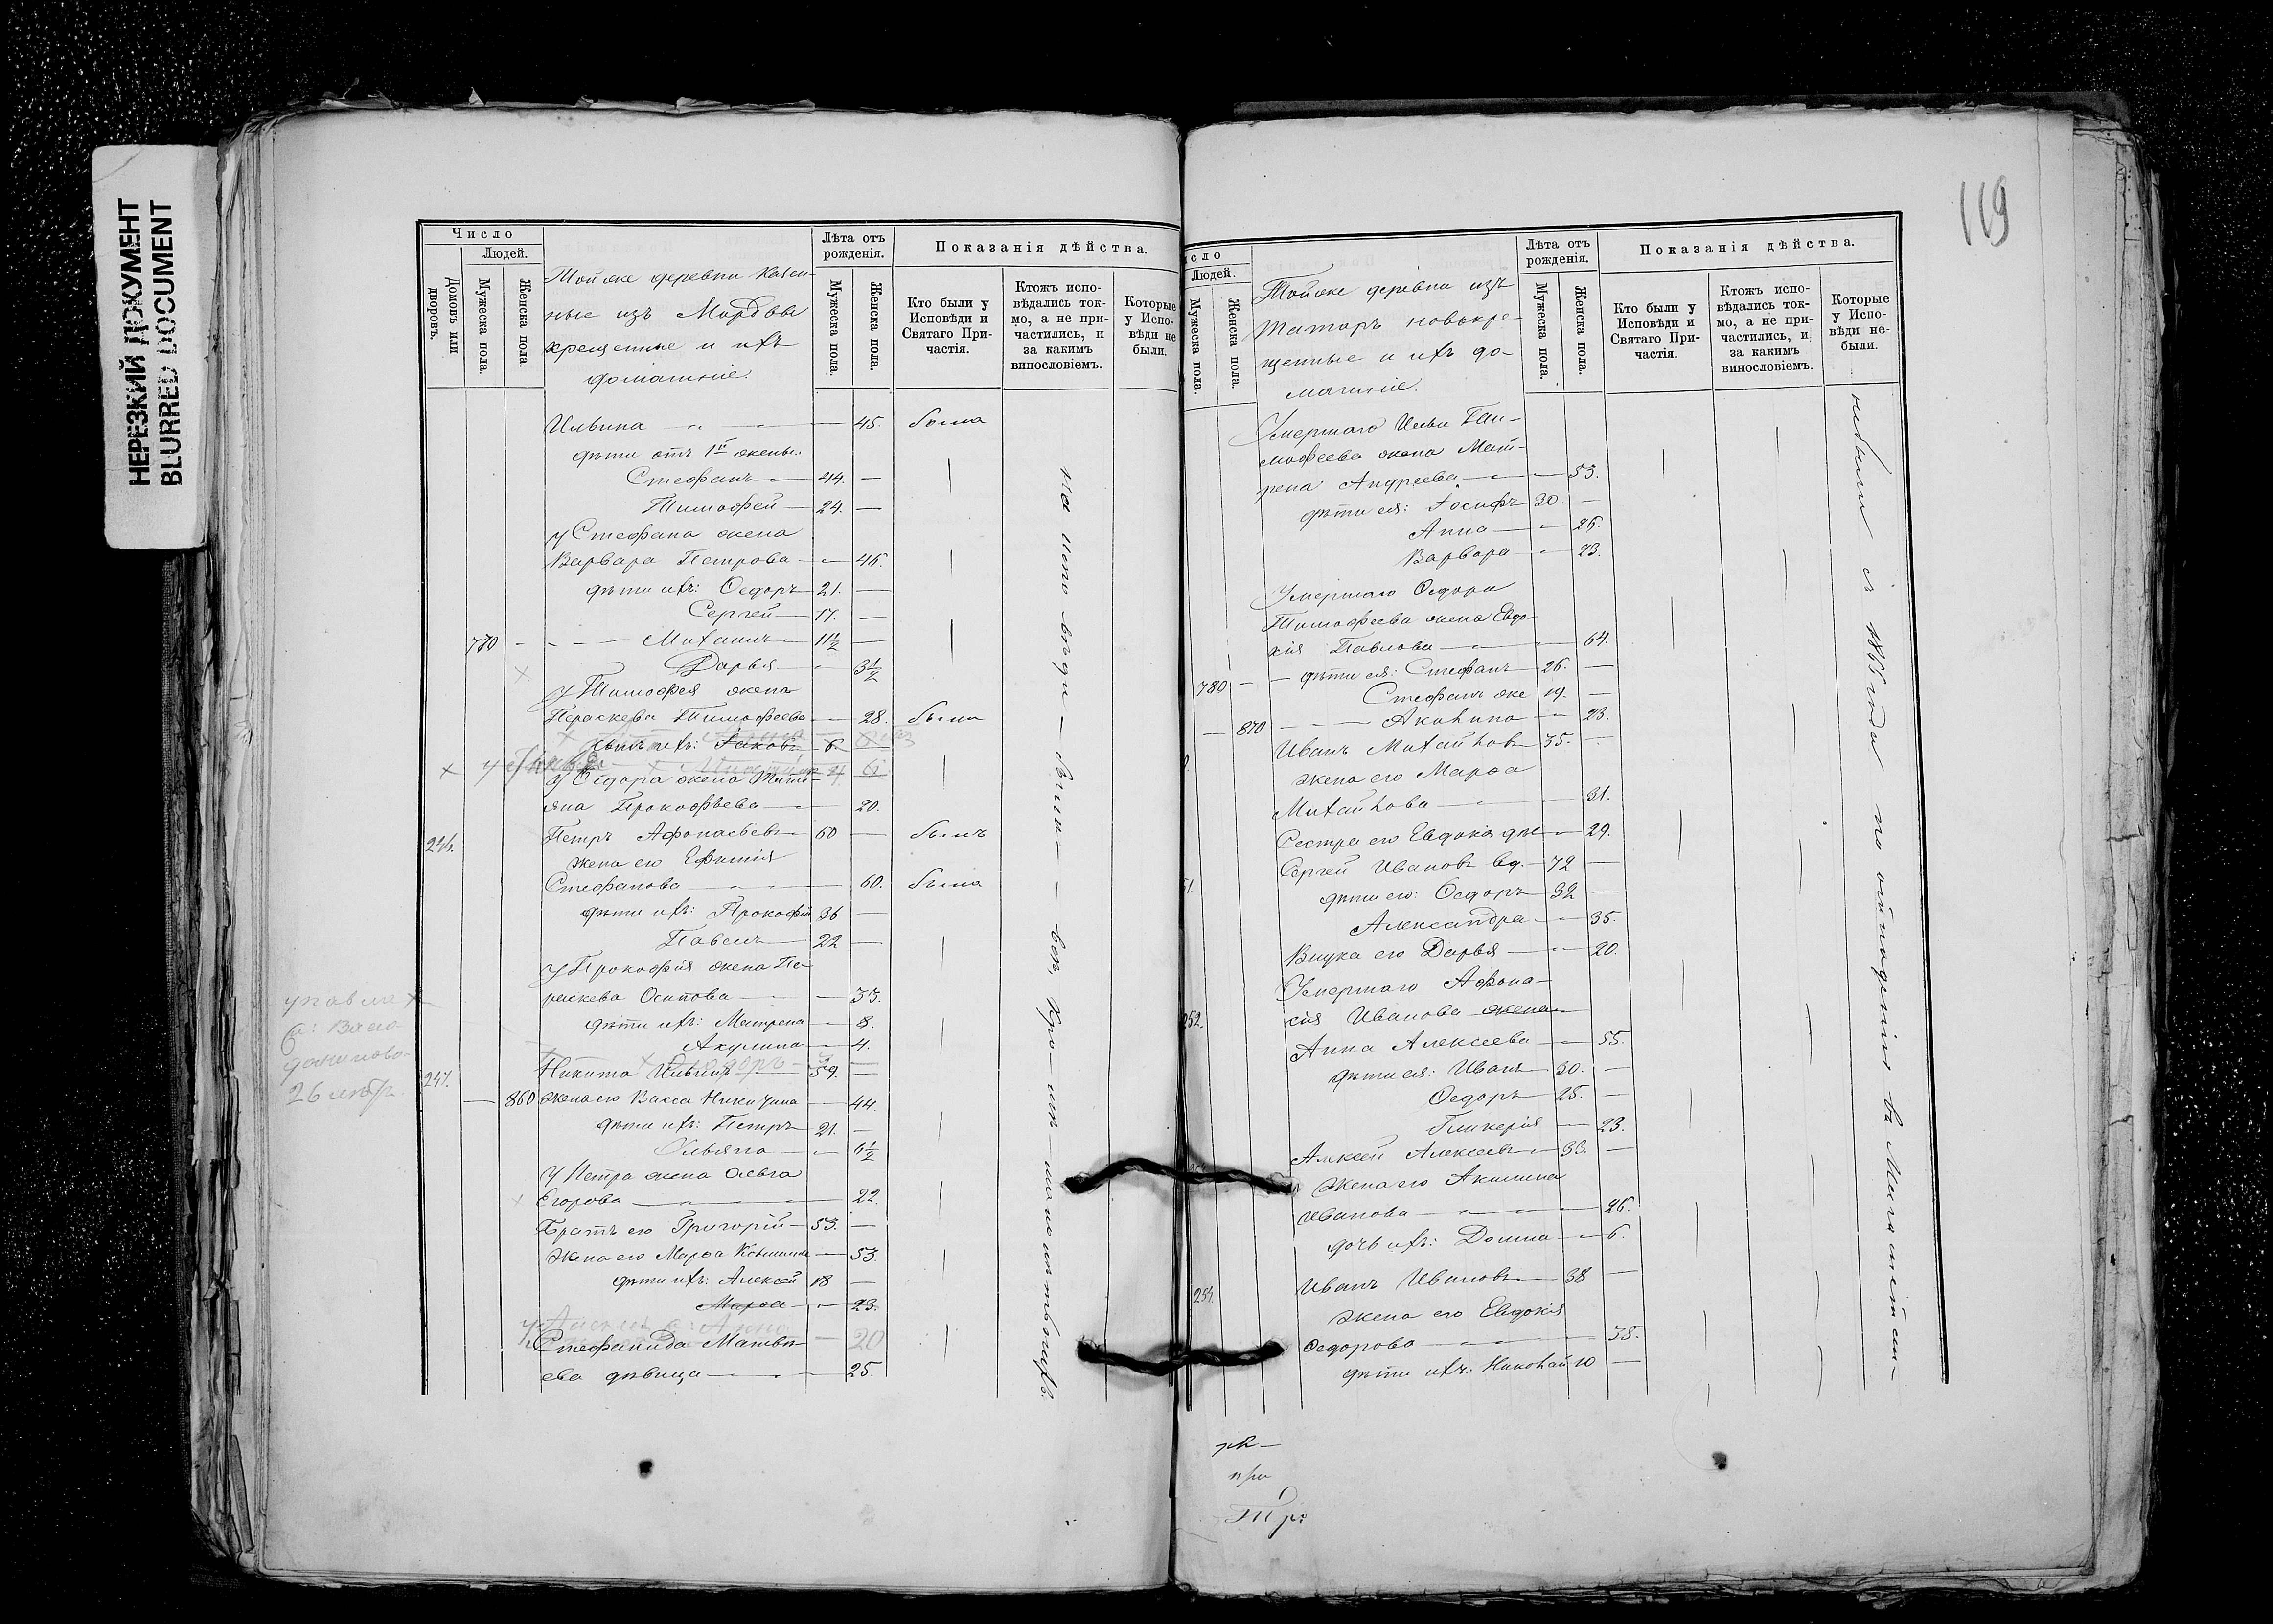 НЕРЕЗКИЙ ДОКУМЕНТ
BLURRED DOCUMENT
119
Число
Людей.
Домовъ или дворовъ.
Мужеска пола.
Женска пола.
Тойже деревни
изъ Мордвы
крещенные и ихъ
домашніе.
Лѣта отъ рожденія.
Мужеска пола.
Женска пола.
Показанія дѣйства.
Кто были у Исповѣди и Святаго Причастія.
Ктожъ исповѣдались токмо, а не причастились, и за какимъ винословіемъ.
Которые у Исповѣди не были.
Ильина — 45. была
дѣти отъ 1й жены:
Стефанъ — 44. —
Тимофей — 24. —
У Стефана жена
Варвара Петрова — 46.
дѣти ихъ: Ѳедоръ 21. —
Сергей — 17. —
770 — Михаилъ — 11½ —
Дарья — 3½
У Тимофея жена
Параскева Тимофеева — 28. была
сынъ ихъ: Іаковъ 6
У Ѳедора жена Тати-
яна Прокофьева — 20.
246. Петръ Афонасьевъ 60 — былъ
жена его Ефимія
Стефанова — 60. была
дѣти ихъ: Прокофій 36 —
Павелъ — 22 —
У Прокофія жена Па-
раскева Осипова — 33.
дѣти ихъ: Матрена — 8.
Акулина — 4.
247. Никита Ильинъ — 59. —
— 860 жена его Васса Никитина — 44.
дѣти ихъ: Петръ 21. —
Ульяна — 6½
У Петра жена Ольга
Егорова — 22.
Братъ его Григорій — 53. —
Жена его Марѳа Козмина — 53.
дѣти ихъ: Алексей 18 —
Марѳа — 23.
20
Стефанида Матвѣ-
ева дѣвица — 25.
26
на испо-вѣди — были — всѣ, кро-мѣ
исло
Людей.
Мужеска пола.
Женска пола.
Тойже деревни изъ
Татаръ новокре-
щенные и ихъ до-
машніе.
Лѣта отъ рожденія.
Мужеска пола.
Женска пола.
Показанія дѣйства.
Кто были у Исповѣди и Святаго Причастія.
Ктожъ исповѣдались токмо, а не причастились, и за какимъ винословіемъ.
Которые у Исповѣди небыли.
Умершаго Ильи Ти-
мофеева жена Мат-
рена Андреева — 53.
дѣти ея: Іосифъ 30. —
Анна — 26.
Варвара — 23.
Умершаго Ѳедора
Тимофеева жена Евдо-
кія Павлова — 64.
780 — дѣти ея: Стефанъ 26. —
Стефанъ же 19. —
— 870 — Акилина — 23.
Иванъ Михайловъ 35. —
жена его Марѳа
Михайлова — 31.
Сестра его Евдокія дѣ — 29.
51. Сергей Ивановъ вд. — 72 —
дѣти его: Ѳедоръ 32 —
Александра — 35.
Внука его Дарья — 20.
Умершаго Афона-
252. сія Иванова жена
Анна Алексеева — 55.
дѣти ея: Иванъ 30. —
Ѳедоръ 25. —
Гликерія — 23.
Алексей Алексеевъ 33. —
жена его Акилина
Иванова — 26.
дочь ихъ: Домна — 6.
254. Иванъ Ивановъ — 38 —
жена его Евдокія
Ѳедорова — 35.
дѣти ихъ: Николай 10 —
небыли съ года по
при